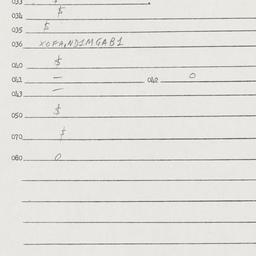 033
034 $
035 $
036 XOFANDIMGAB1
040 $
041 — 042 0
043 —
050 $
070 $
080 0